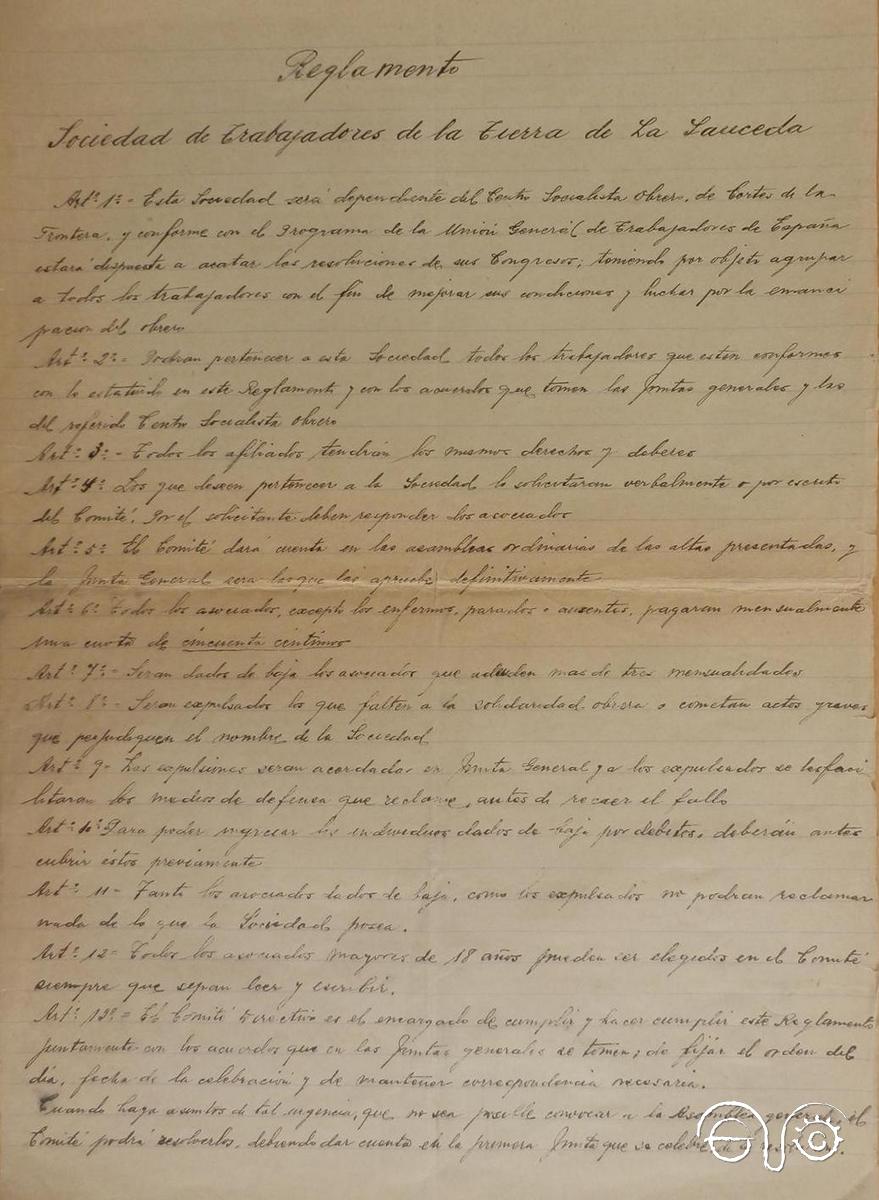 Reglamento
Sociedad de Trabajadores de la Tierra de La Sauceda
Artº. 1º- Esta Sociedad será dependiente del Centro Socialista Obrero, de Cortes de la
Frontera, y conforme con el Programa de la Unión General de Trabajadores de España
estará dispuesta a acatar las resoluciones de sus Congresos; teniendo por objeto agrupar
a todos los trabajadores con el fin de mejorar sus condiciones y luchar por la emanci
pacion del obrero
Artº. 2º= Podran pertenecer a esta Sociedad todos los trabajadores que esten conformes
con lo estatuido en este Reglamento y con los acuerdos que tomen las Juntas generales y las
del referido Centro Socialista Obrero
Artº. 3º- Todos los afiliados tendrán los mismos derechos y deberes
Artº. 4º Los que deseen pertenecer a la Sociedad lo solicitaran verbalmente o por escrito
del Comité. Por el solicitante deben responder dos asociados
Artº. 5º El Comité dará cuenta en las asambleas ordinarias de las altas presentadas, y
la Junta General sera la que las apruebe definitivamente
Artº. 6º Todos los asociados, excepto los enfermos, parados o ausentes, pagaran mensualmente
una cuota de cincuenta centimos
Artº. 7º- Seran dados de baja los asociados que adeuden mas de tres mensualidades
Artº. 8º- Seran expulsados los que falten a la solidaridad obrera o cometan actos graves
que perjudiquen el nombre de la Sociedad
Artº. 9- Las expulsiones seran acordadas en Junta General y a los expulsados se les faci
litaran los medios de defensa que reclame, antes de recaer el fallo
Artº. 10º Para poder ingresar los individuos dados de baja por debitos, deberán antes
cubrir éstos previamente
Artº. 11- Tanto los asociados dados de baja, como los expulsados no podran reclamar
nada de lo que la Sociedad posea.
Artº. 12= Todos los asociados mayores de 18 años pueden ser elegidos en el Comité
siempre que sepan leer y escribir.
Artº. 13º= El Comité Directivo es el encargado de cumplir y hacer cumplir este Reglamento
juntamente con los acuerdos que en las Juntas generales se tomen; de fijar el orden del
dia, fecha de la celebración y de mantener correspondencia necesaria.
Cuando haya asuntos de tal urgencia, que no sea posible convocar a la Asamblea general, el
Comité podrá resolverlos, debiendo dar cuenta en la primera Junta que se celebre